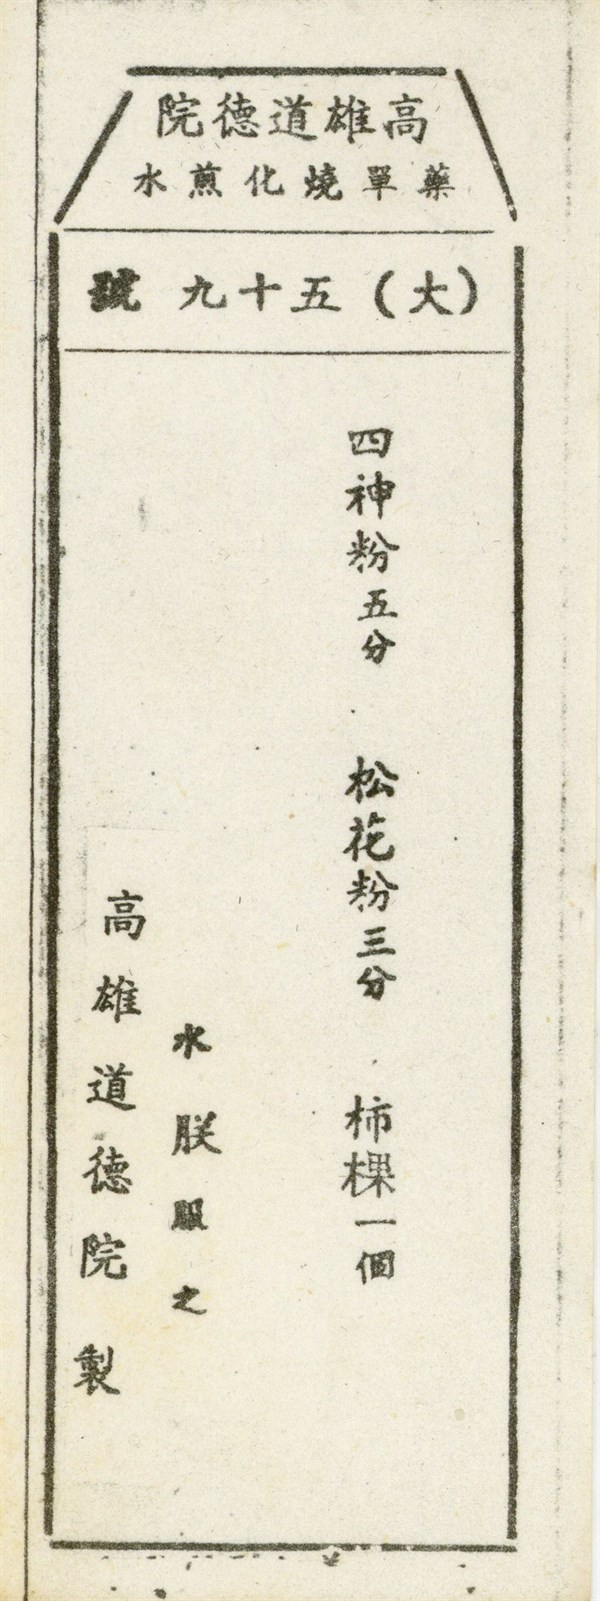 高雄道德院
藥單燒化煎水
(大)五十九號
四神粉五分 松花粉三分 柿粿一個
水朕服之
高雄道德院製